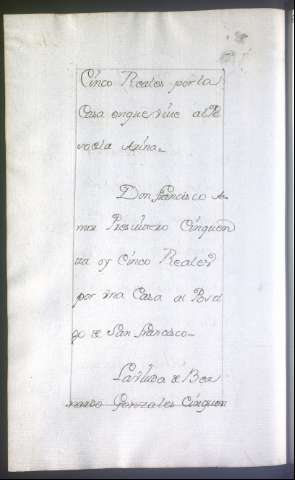 Cinco Reales por la
Casa enque vive al Pe
Asina.
Don francisco A
mor Presvitero Cinquen
tta y Cinco Reales
por vna Casa al Postd
go de San francisco.
La viuda de Ber
nardo Gonzales Cinquen